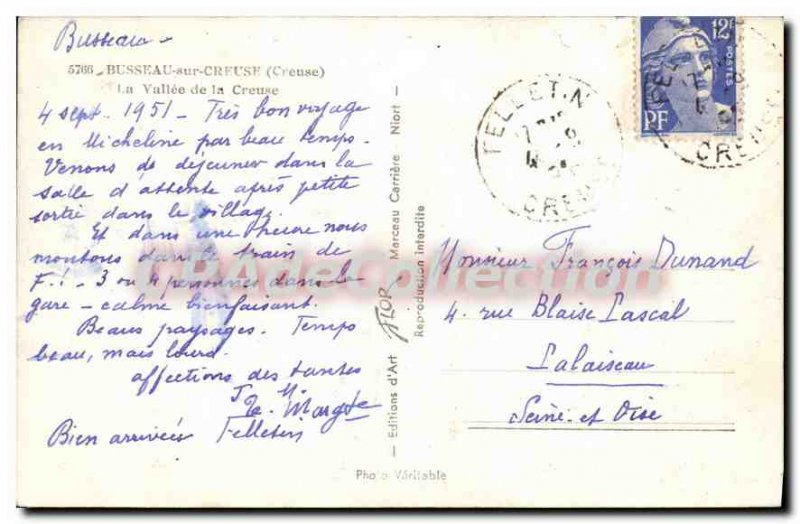 Busseau -
5766 - BUSSEAU-sur-CREUSE (Creuse)
La Vallée de la Creuse
4 sept. 1951 - Très bon voyage
en Micheline par beau temps.
Venons de déjeuner dans la
salle d'attente après petite
sortie dans le village.
Et dans une heure nous
montons dans le train de
F.! - 3 ou 4 personnes dans la
gare - calme bienfaisant.
Beaux paysages. Temps
beau, mais lourd.
affections des tantes
Margte
Bien arrivées Felletin
- Editions d'Art FLOR Marceau Carrière Niort -
Reproduction interdite
Photo Véritable
12F
POSTES
PF
FELLETIN
CREUSE
CREUSE
Monsieur François Dunand
4. rue Blaise Pascal
Palaiseau
Seine-et Oise
CPADeCollection